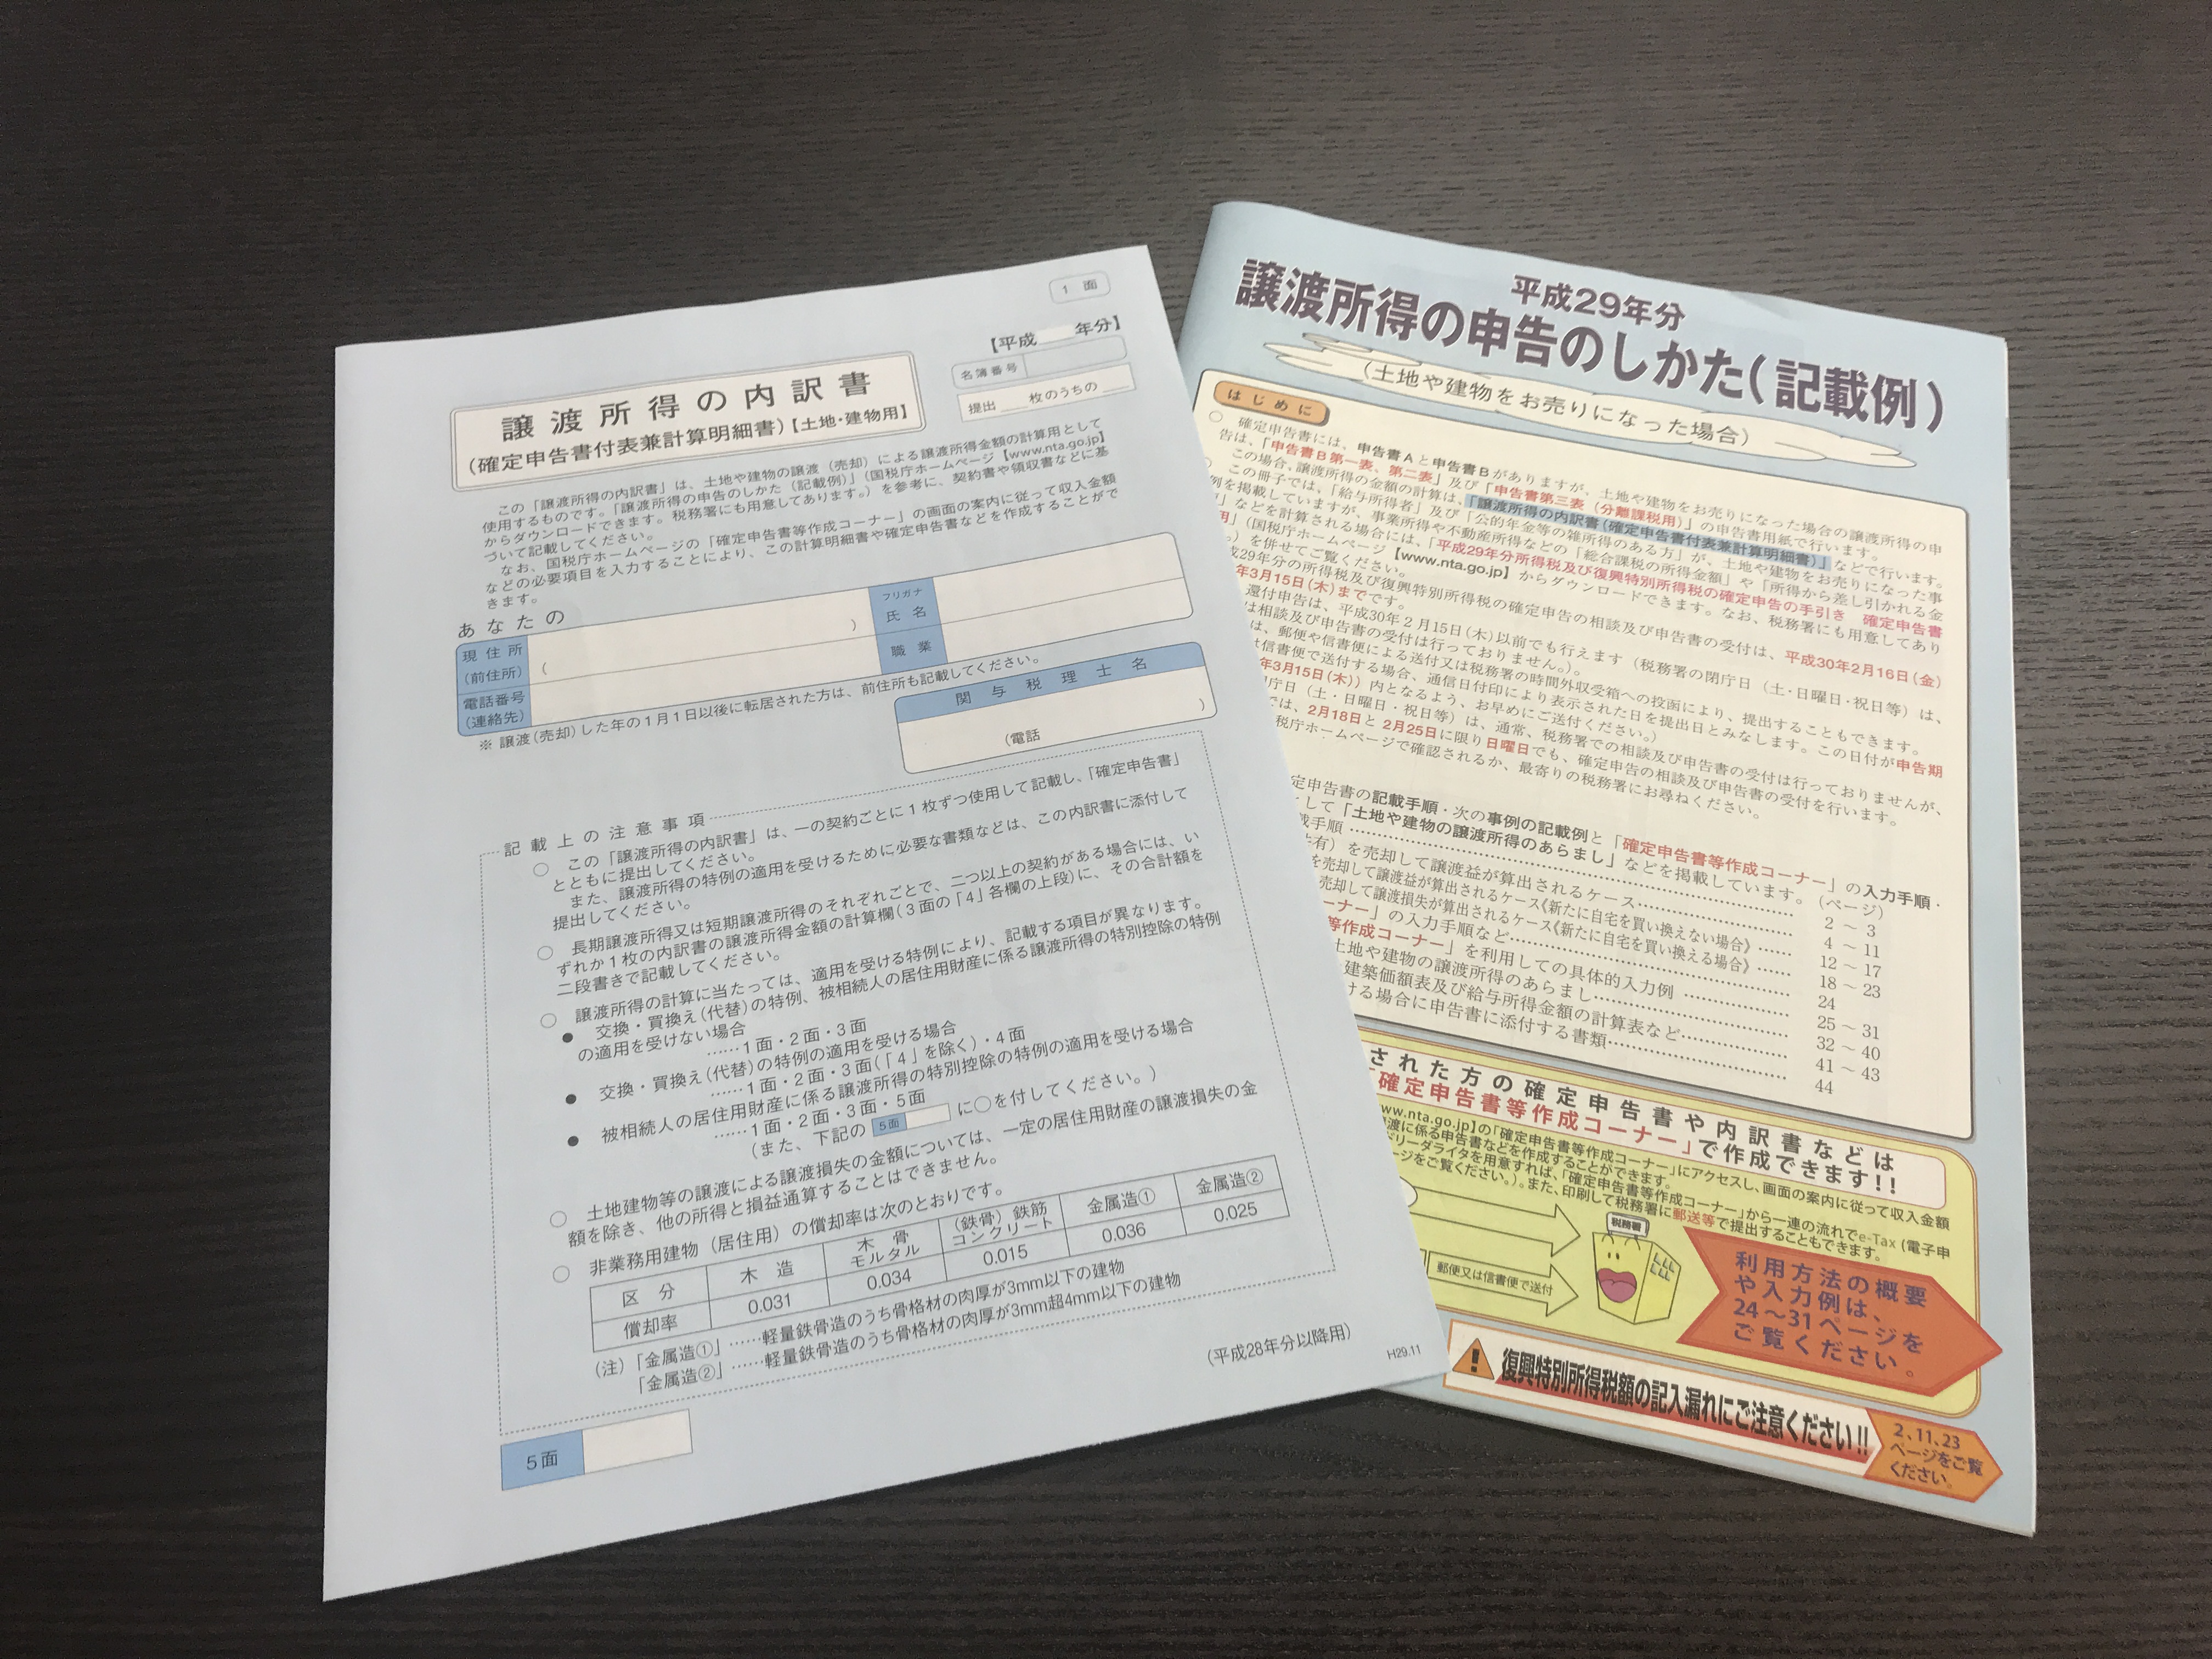 1 面
【平成　　年分】
名簿番号
提出　　枚のうちの
譲渡所得の内訳書
（確定申告書付表兼計算明細書）【土地・建物用】
この「譲渡所得の内訳書」は、土地や建物の譲渡（売却）による譲渡所得金額の計算用として
使用するものです。「譲渡所得の申告のしかた（記載例）」（国税庁ホームページ【www.nta.go.jp】
からダウンロードできます。税務署にも用意してあります。）を参考に、契約書や領収書などに基
づいて記載してください。
なお、国税庁ホームページの「確定申告書等作成コーナー」の画面の案内に従って収入金額
などの必要項目を入力することにより、この計算明細書や確定申告書などを作成することがで
きます。
あなたの
現住所
（前住所）
（　　）
電話番号
（連絡先）
フリガナ
氏名
職業
※ 譲渡（売却）した年の1月1日以後に転居された方は、前住所も記載してください。
関与税理士名
（電話　　）
記載上の注意事項
○ この「譲渡所得の内訳書」は、一の契約ごとに1枚ずつ使用して記載し、「確定申告書」
とともに提出してください。
また、譲渡所得の特例の適用を受けるために必要な書類などは、この内訳書に添付して
提出してください。
○ 長期譲渡所得又は短期譲渡所得のそれぞれごとで、二つ以上の契約がある場合には、い
ずれか1枚の内訳書の譲渡所得金額の計算欄（3面の「4」各欄の上段）に、その合計額を
二段書きで記載してください。
○ 譲渡所得の計算に当たっては、適用を受ける特例により、記載する項目が異なります。
● 交換・買換え（代替）の特例、被相続人の居住用財産に係る譲渡所得の特別控除の特例
の適用を受けない場合
……1面・2面・3面
● 交換・買換え（代替）の特例の適用を受ける場合
……1面・2面・3面（「4」を除く）・4面
● 被相続人の居住用財産に係る譲渡所得の特別控除の特例の適用を受ける場合
……1面・2面・3面・5面
（また、下記の 5面 に○を付してください。）
○ 土地建物等の譲渡による譲渡損失の金額については、一定の居住用財産の譲渡損失の金
額を除き、他の所得と損益通算することはできません。
○ 非業務用建物（居住用）の償却率は次のとおりです。
区分 木造 木骨モルタル （鉄骨）鉄筋コンクリート 金属造① 金属造②
償却率 0.031 0.034 0.015 0.036 0.025
（注）「金属造①」……軽量鉄骨造のうち骨格材の肉厚が3mm以下の建物
「金属造②」……軽量鉄骨造のうち骨格材の肉厚が3mm超4mm以下の建物
（平成28年分以降用）
H29.11
5面
平成29年分
譲渡所得の申告のしかた（記載例）
（土地や建物をお売りになった場合）
はじめに
○ 確定申告書には、申告書Aと申告書Bがありますが、土地や建物をお売りになった場合の譲渡所得の申
告は、「申告書B第一表、第二表」及び「申告書第三表（分離課税用）」の申告書用紙で行います。
この場合、譲渡所得の金額の計算は、「譲渡所得の内訳書（確定申告書付表兼計算明細書）」などで行います。
この冊子では、「給与所得者」及び「公的年金等の雑所得のある方」が、土地や建物をお売りになった事
例を掲載していますが、事業所得や不動産所得などの「総合課税の所得金額」や「所得から差し引かれる金
」などを計算される場合には、「平成29年分所得税及び復興特別所得税の確定申告の手引き　確定申告書
用」（国税庁ホームページ【www.nta.go.jp】からダウンロードできます。なお、税務署にも用意してあり
。）を併せてご覧ください。
成29年分の所得税及び復興特別所得税の確定申告の相談及び申告書の受付は、平成30年2月16日（金）
年3月15日（木）までです。
還付申告は、平成30年2月15日（木）以前でも行えます（税務署の閉庁日（土・日曜日・祝日等）は、
は相談及び申告書の受付は行っておりません。）。
は、郵便や信書便による送付又は税務署の時間外収受箱への投函により、提出することもできます。
信書便で送付する場合、通信日付印により表示された日を提出日とみなします。この日付が申告期
年3月15日（木））内となるよう、お早めにご送付ください。）
庁日（土・日曜日・祝日等）は、通常、税務署での相談及び申告書の受付は行っておりませんが、
では、2月18日と2月25日に限り日曜日でも、確定申告の相談及び申告書の受付を行います。
税庁ホームページで確認されるか、最寄りの税務署にお尋ねください。
定申告書の記載手順・次の事例の記載例と「確定申告書等作成コーナー」の入力手順・
して「土地や建物の譲渡所得のあらまし」などを掲載しています。（ページ）
手順…… 2 ～ 3
有）を売却して譲渡益が算出されるケース…… 4 ～ 11
を売却して譲渡益が算出されるケース《新たに自宅を買い換えない場合》…… 12 ～ 17
売却して譲渡損失が算出されるケース《新たに自宅を買い換える場合》…… 18 ～ 23
ーナー」の入力手順など…… 24
等作成コーナー」を利用しての具体的入力例…… 25 ～ 31
土地や建物の譲渡所得のあらまし…… 32 ～ 40
建築価額表及び給与所得金額の計算表など…… 41 ～ 43
ける場合に申告書に添付する書類…… 44
された方の確定申告書や内訳書などは
確定申告書等作成コーナー」で作成できます!!
ww.nta.go.jp】の「確定申告書等作成コーナー」にアクセスし、画面の案内に従って収入金額
渡に係る申告書などを作成することができます。
ドリーダライタを用意すれば、「確定申告書等作成コーナー」から一連の流れでe-Tax（電子申
ージをご覧ください。）。また、印刷して税務署に郵送等で提出することもできます。
税務署
郵便又は信書便で送付
利用方法の概要
や入力例は、
24～31ページを
ご覧ください。
復興特別所得税額の記入漏れにご注意ください!!
2、11、23
ページをご覧
ください。